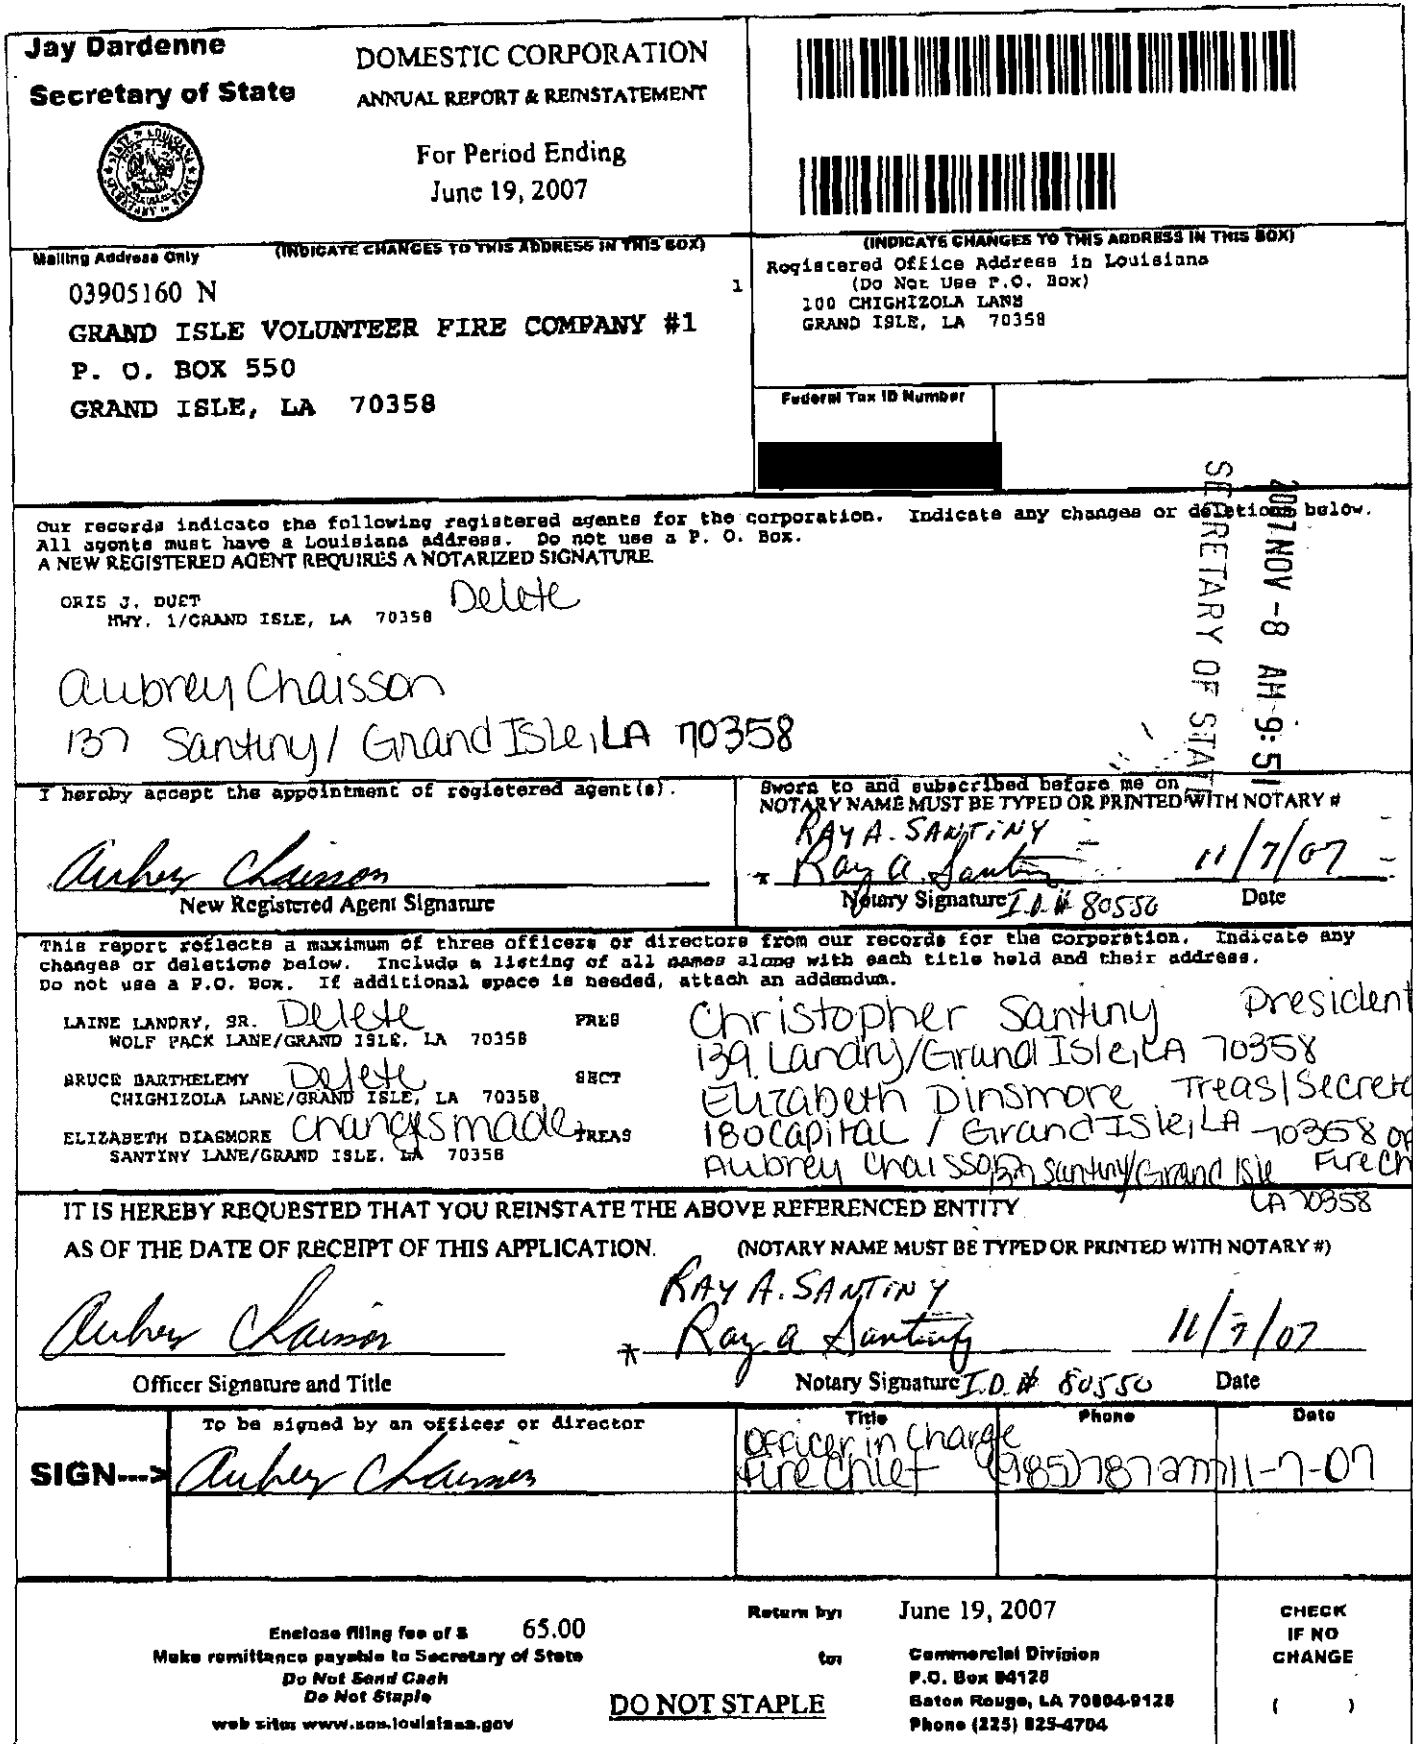 Jay Dardenne
Secretary of State
DOMESTIC CORPORATION
ANNUAL REPORT & REINSTATEMENT
For Period Ending
June 19, 2007
Mailing Address Only
(INDICATE CHANGES TO THIS ADDRESS IN THIS BOX)
03905160 N
GRAND ISLE VOLUNTEER FIRE COMPANY #1
P. O. BOX 550
GRAND ISLE, LA 70358
1
(INDICATE CHANGES TO THIS ADDRESS IN THIS BOX)
Registered Office Address in Louisiana
(Do Not Use P.O. Box)
100 CHIGHIZOLA LANE
GRAND ISLE, LA 70358
Federal Tax ID Number
SECRETARY OF STATE
2007 NOV -8 AM 9:51
Our records indicate the following registered agents for the corporation. Indicate any changes or deletions below.
All agents must have a Louisiana address. Do not use a P. O. Box.
A NEW REGISTERED AGENT REQUIRES A NOTARIZED SIGNATURE.
ORIS J. DUET Delete
HWY. 1/GRAND ISLE, LA 70358
Aubrey Chaisson
137 Santiny/ Grand Isle, LA 70358
I hereby accept the appointment of registered agent(s).
Aubrey Chaisson
New Registered Agent Signature
Sworn to and subscribed before me on
NOTARY NAME MUST BE TYPED OR PRINTED WITH NOTARY #
RAY A. SANTINY
* Ray A. Santiny 11/7/07
Notary Signature I.D. # 80550 Date
This report reflects a maximum of three officers or directors from our records for the corporation. Indicate any
changes or deletions below. Include a listing of all names along with each title held and their address.
Do not use a P.O. Box. If additional space is needed, attach an addendum.
LAINE LANDRY, SR. Delete PRES
WOLF PACK LANE/GRAND ISLE, LA 70358
BRUCE BARTHELEMY Delete SECT
CHIGHIZOLA LANE/GRAND ISLE, LA 70358
ELIZABETH DIASMORE Changes made TREAS
SANTINY LANE/GRAND ISLE, LA 70358
Christopher Santiny President
139 Landry/Grand Isle, LA 70358
Elizabeth Dinsmore Treas/Secreta
180 Capital / Grand Isle, LA 70358
Aubrey Chaisson 137 Santiny/Grand Isle Fire Ch
LA 70358
IT IS HEREBY REQUESTED THAT YOU REINSTATE THE ABOVE REFERENCED ENTITY
AS OF THE DATE OF RECEIPT OF THIS APPLICATION.
(NOTARY NAME MUST BE TYPED OR PRINTED WITH NOTARY #)
RAY A. SANTINY
Aubrey Chaisson * Ray A Santiny 11/7/07
Officer Signature and Title Notary Signature I.D. # 80550 Date
To be signed by an officer or director
SIGN---> Aubrey Chaisson
Title
Officer in Charge
Fire Chief
Phone
(985)787-2777
Date
11-7-07
Enclose filing fee of $ 65.00
Make remittance payable to Secretary of State
Do Not Send Cash
Do Not Staple
web site: www.sos.louisiana.gov
DO NOT STAPLE
Return by: June 19, 2007
to: Commercial Division
P.O. Box 94125
Baton Rouge, LA 70804-9125
Phone (225) 925-4704
CHECK
IF NO
CHANGE
( )